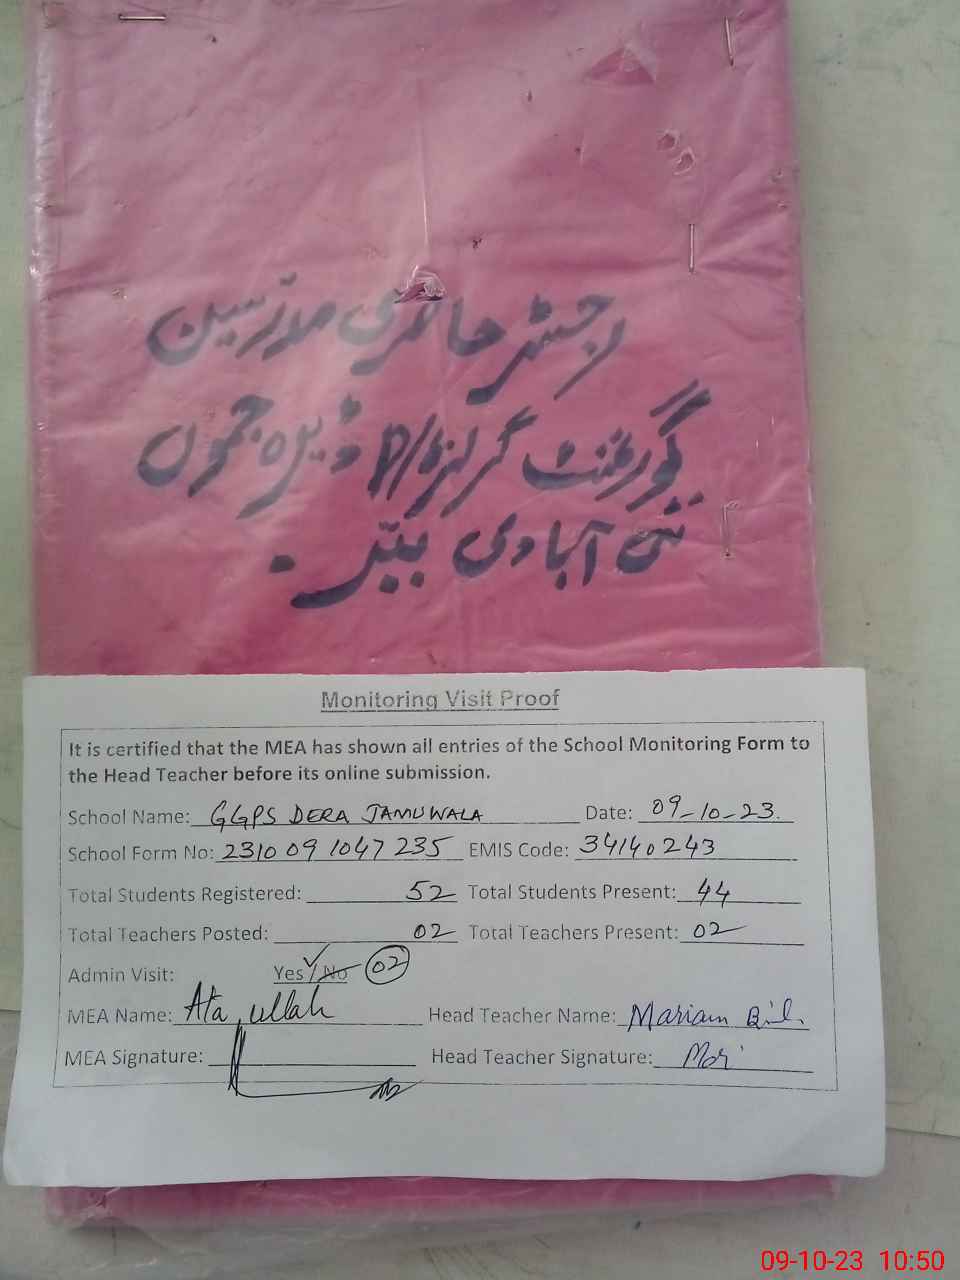 رجسٹر حاضری مدرسین
گورنمنٹ گرلز P/S ڈیرہ جموں
نئی آبادی
Monitoring Visit Proof
It is certified that the MEA has shown all entries of the School Monitoring Form to
the Head Teacher before its online submission.
School Name: GGPS DERA JAMUWALA Date: 09-10-23.
School Form No: 2310 09 1047 235 EMIS Code: 34140243
Total Students Registered: 52 Total Students Present: 44
Total Teachers Posted: 02 Total Teachers Present: 02
Admin Visit: Yes / No 02
MEA Name: Ata ullah Head Teacher Name: Mariam
MEA Signature: Head Teacher Signature:
09-10-23 10:50